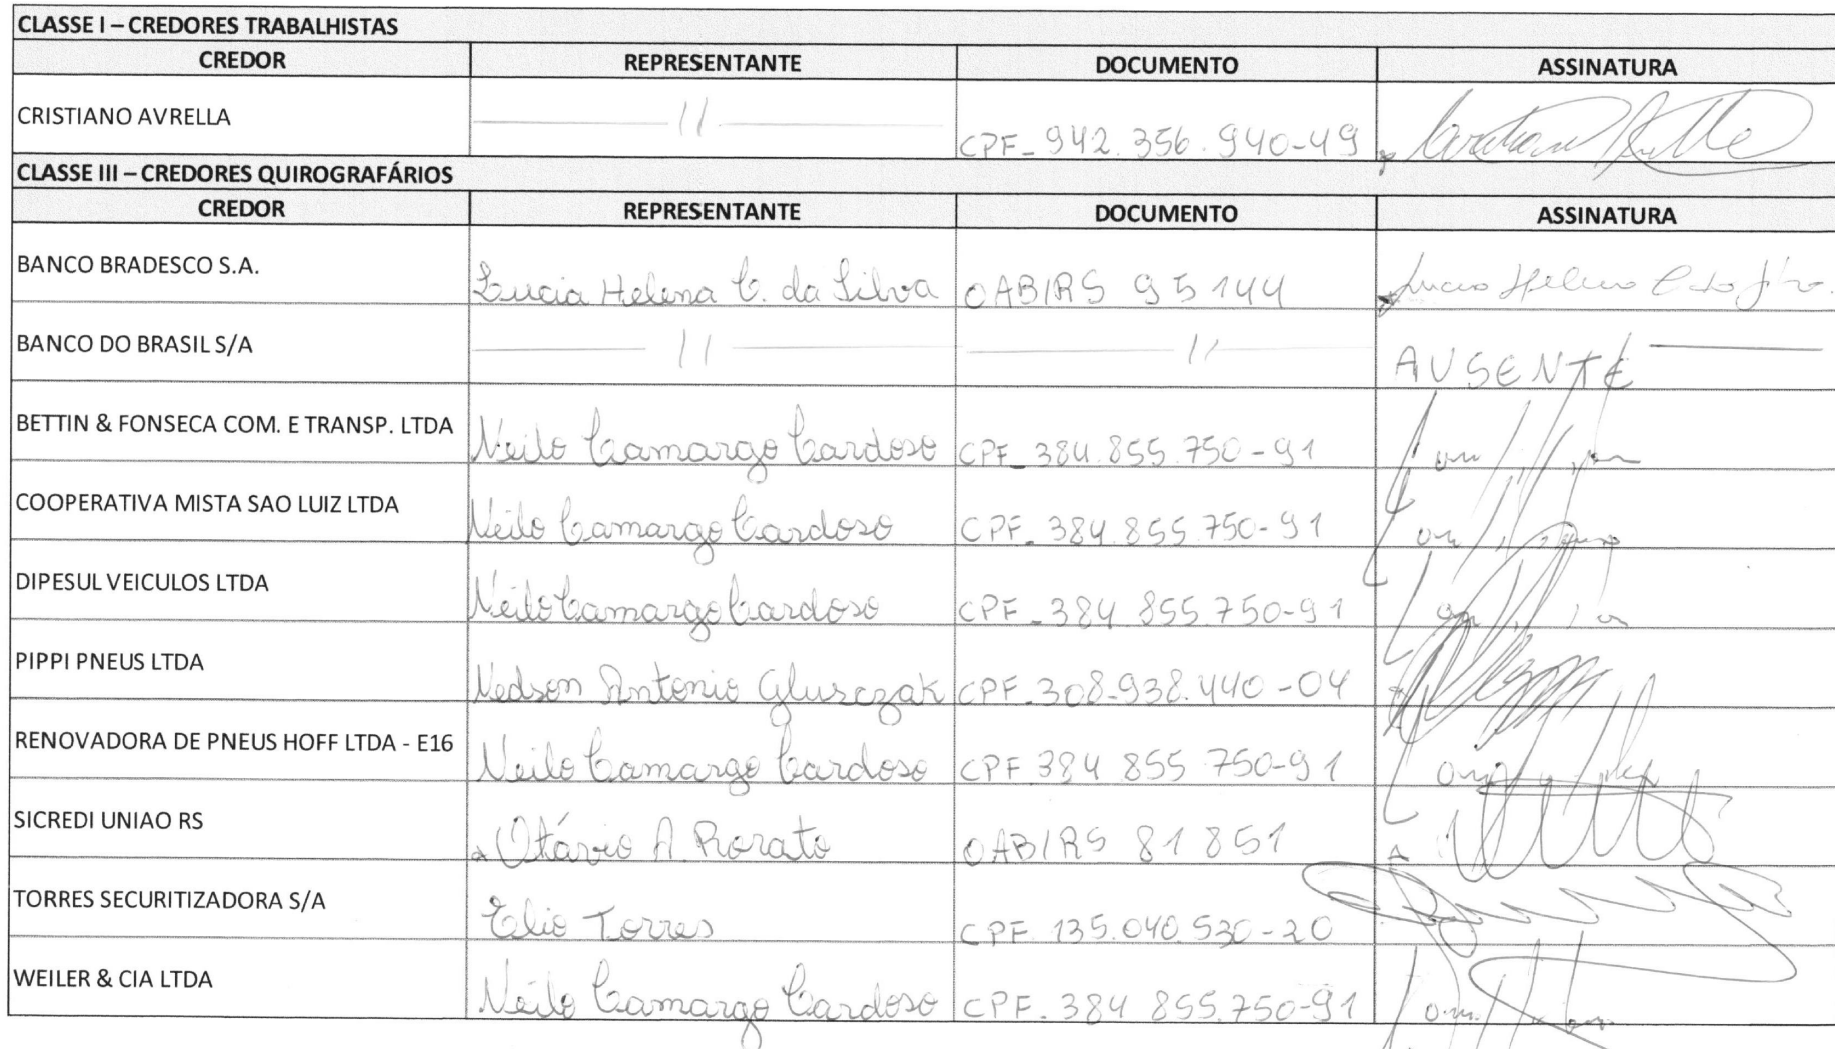 CLASSE I – CREDORES TRABALHISTAS
CREDOR REPRESENTANTE DOCUMENTO ASSINATURA
CRISTIANO AVRELLA —— // —— CPF_942.356.940-49
CLASSE III – CREDORES QUIROGRAFÁRIOS
CREDOR REPRESENTANTE DOCUMENTO ASSINATURA
BANCO BRADESCO S.A. Lucia Helena C. da Silva OAB/RS 95144
BANCO DO BRASIL S/A —— // —— —— // —— AUSENTE
BETTIN & FONSECA COM. E TRANSP. LTDA Neilo Camargo Cardoso CPF_384.855.750-91
COOPERATIVA MISTA SAO LUIZ LTDA Neilo Camargo Cardoso CPF_384.855.750-91
DIPESUL VEICULOS LTDA Neilo Camargo Cardoso CPF_384 855.750-91
PIPPI PNEUS LTDA Nedson Antonio Glusczak CPF_308.938.440-04
RENOVADORA DE PNEUS HOFF LTDA - E16 Neilo Camargo Cardoso CPF 384 855 750-91
SICREDI UNIAO RS Otávio A. Rorato OAB/RS 81851
TORRES SECURITIZADORA S/A Elio Torres CPF 135.040.530-20
WEILER & CIA LTDA Neilo Camargo Cardoso CPF_384 855.750-91